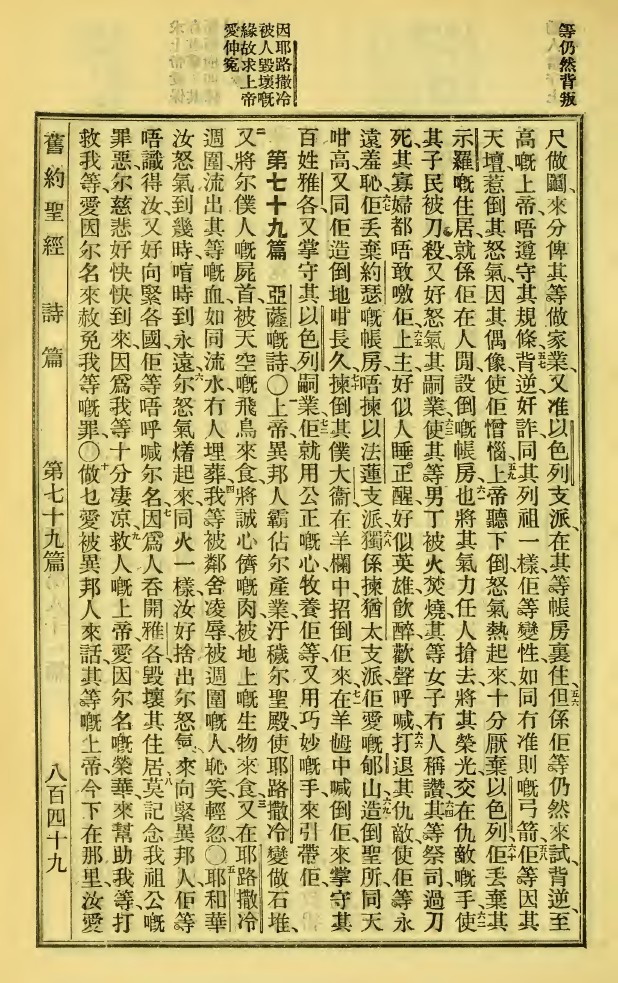 等仍然背叛
因耶路撒冷
被人毀壞嘅
緣故求上帝
愛伸寃
尺做鬮、來分俾其等做家業、又准以色列支派、在其等帳房裏住、五六但係佢等仍然來試、背逆至
高嘅上帝、唔遵守其規條、五七背逆奸詐、同其列祖一樣、佢等變性、如同冇准則嘅弓箭、五八佢等因其
天壇、惹倒其怒氣、因其偶像、使佢憎惱、五九上帝聽下倒、怒氣熱起來、十分厭棄以色列、六十佢丟棄其
示羅嘅住居、就係佢在人間設倒嘅帳房、六一也將其氣力任人搶去、將其榮光交在仇敵嘅手、六二使
其子民被刀殺、又好怒氣其嗣業、六三使其等男丁被火焚燒、其等女子冇人稱讚、六四其等祭司過刀
死、其寡婦都唔敢噭、六五佢上主好似人睡正醒、好似英雄飲醉歡聲呼喊、六六打退其仇敵、使佢等永
遠羞恥、六七佢丟棄約瑟嘅帳房、唔揀以法蓮支派、六八獨係揀猶太支派、佢愛嘅郇山、六九造倒聖所、同天
咁高、又同佢造倒地咁長久、七十揀倒其僕大衛、在羊欄中招倒佢來、七一在羊𡛔中喊倒佢來、掌守其
百姓雅各、又掌守其以色列嗣業、七二佢就用公正嘅心牧養佢等、又用巧妙嘅手來引帶佢、
第七十九篇　亞薩嘅詩、〇一上帝、異邦人霸佔尔產業、汙穢尔聖殿、使耶路撒冷變做石堆、
二又將尔僕人嘅屍首、被天空嘅飛鳥來食、將誠心儕嘅肉、被地上嘅生物來食、三又在耶路撒冷
週圍、流出其等嘅血、如同流水、冇人埋葬、四我等被鄰舍凌辱、被週圍嘅人恥笑輕忽、〇五耶和華
汝怒氣到幾時、喑時到永遠、六尔怒氣㷮起來、同火一樣、汝好捨出尔怒氣、來向緊異邦人、佢等
唔識得汝、又好向緊各國、佢等唔呼喊尔名、七因爲人吞開雅各、毀壞其住居、八莫記念我祖公嘅
罪惡、尔慈悲好快快到來、因爲我等十分凄凉、九救人嘅上帝、愛因尔名嘅榮華、來幫助我等、打
救我等、愛因尔名來赦免我等嘅罪、〇十做乜愛被異邦人來話、其等嘅上帝、今下在那里、汝愛
舊約聖經　詩篇　第七十九篇　八百四十九